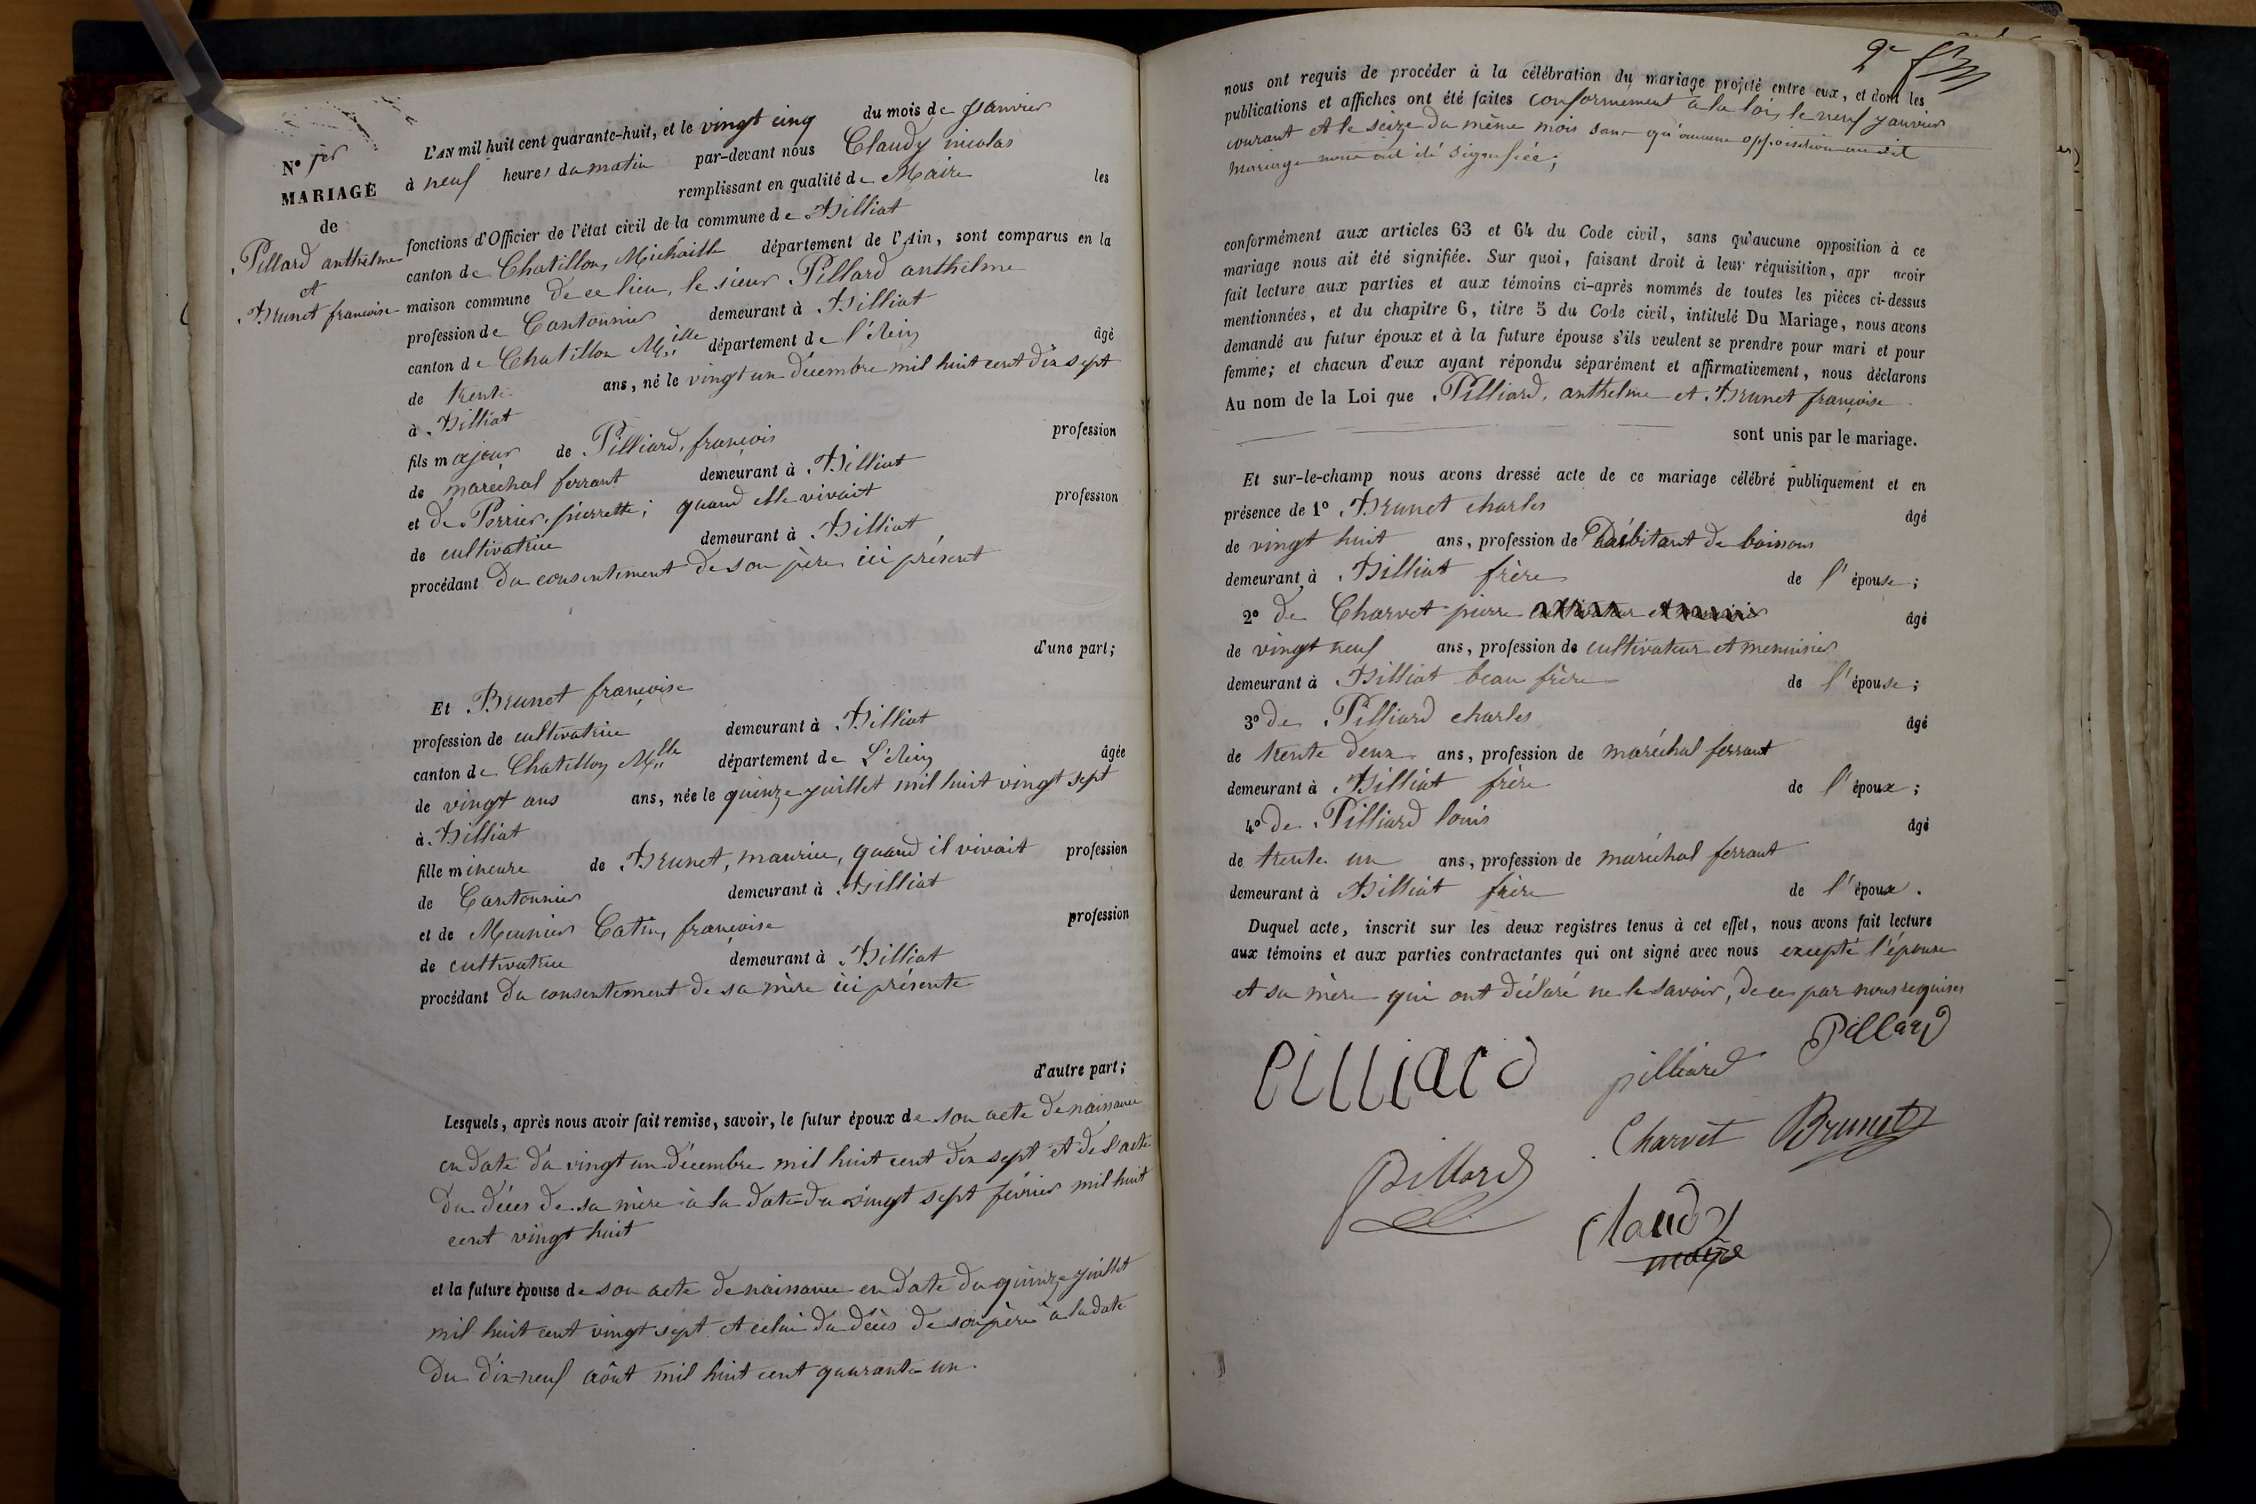 N° 1er
MARIAGE
de
Pillard anthelme
et
Brunet francoise
L'AN mil huit cent quarante-huit, et le vingt cinq du mois de Janvier
à neuf heures du matin par-devant nous Claudy nicolas
remplissant en qualité de Maire les
fonctions d'Officier de l'état civil de la commune de Billiat
canton de Chatillon, Michaille département de l'Ain, sont comparus en la
maison commune de ce lieu, le sieur Pillard anthelme
profession de Cantonnier demeurant à Billiat
canton de Chatillon M.ille département de l'Ain âgé
de trente ans, né le vingt un décembre mil huit cent dix sept
à Billiat
fils majeur de Pilliard, françois profession
de maréchal ferrant demeurant à Billiat
et de Perrier, pierrette; quand elle vivait profession
de cultivatrice demeurant à Billiat
procédant du consentement de son père ici présent
d'une part;
Et Brunet françoise
profession de cultivatrice demeurant à Billiat
canton de Chatillon M.lle département de L'Ain âgée
de vingt ans ans, née le quinze juillet mil huit vingt sept
à Billiat
fille mineure de Brunet, maurice, quand il vivait profession
de Cantonnier demeurant à Billiat
et de Meunier Catin, françoise profession
de cultivatrice demeurant à Billiat
procédant du consentement de sa mère ici présente
d'autre part;
Lesquels, après nous avoir fait remise, savoir, le futur époux de son acte de naissance
en date du vingt un décembre mil huit cent dix sept et de l'acte
du décès de sa mère à la date du vingt sept février mil huit
cent vingt huit
et la future épouse de son acte de naissance en date du quinze juillet
mil huit cent vingt sept et celui du décès de son père à la date
du dix-neuf août mil huit cent quarante un.
2e
nous ont requis de procéder à la célébration du mariage projeté entre eux, et dont les
publications et affiches ont été faites conformement à la loi, le neuf janvier
courant et le seize du même mois sans qu'aucune opposition au dit
mariage nous ait été signifiée;
conformément aux articles 63 et 64 du Code civil, sans qu'aucune opposition à ce
mariage nous ait été signifiée. Sur quoi, faisant droit à leur réquisition, apr avoir
fait lecture aux parties et aux témoins ci-après nommés de toutes les pièces ci-dessus
mentionnées, et du chapitre 6, titre 5 du Code civil, intitulé Du Mariage, nous avons
demandé au futur époux et à la future épouse s'ils veulent se prendre pour mari et pour
femme; et chacun d'eux ayant répondu séparément et affirmativement, nous déclarons
Au nom de la Loi que Pilliard, anthelme et Brunet françoise
sont unis par le mariage.
Et sur-le-champ nous avons dressé acte de ce mariage célébré publiquement et en
présence de 1° Brunet charles âgé
de vingt huit ans, profession de Débitant de boissons
demeurant à Billiat frère de l'épouse;
2° de Charvet pierre âgé
de vingt neuf ans, profession de cultivateur et menuisier
demeurant à Billiat beau frère de l'épouse;
3° de Pilliard charles âgé
de trente deux ans, profession de maréchal ferrant
demeurant à Billiat frère de l'époux;
4° de Pilliard louis âgé
de trente un ans, profession de maréchal ferrant
demeurant à Billiat frère de l'époux.
Duquel acte, inscrit sur les deux registres tenus à cet effet, nous avons fait lecture
aux témoins et aux parties contractantes qui ont signé avec nous excepté l'épouse
et sa mère qui ont déclaré ne le savoir, de ce par nous requises
Pilliard pilliard Pillard
Charvet Brunet
Pillard
Claudy
maire